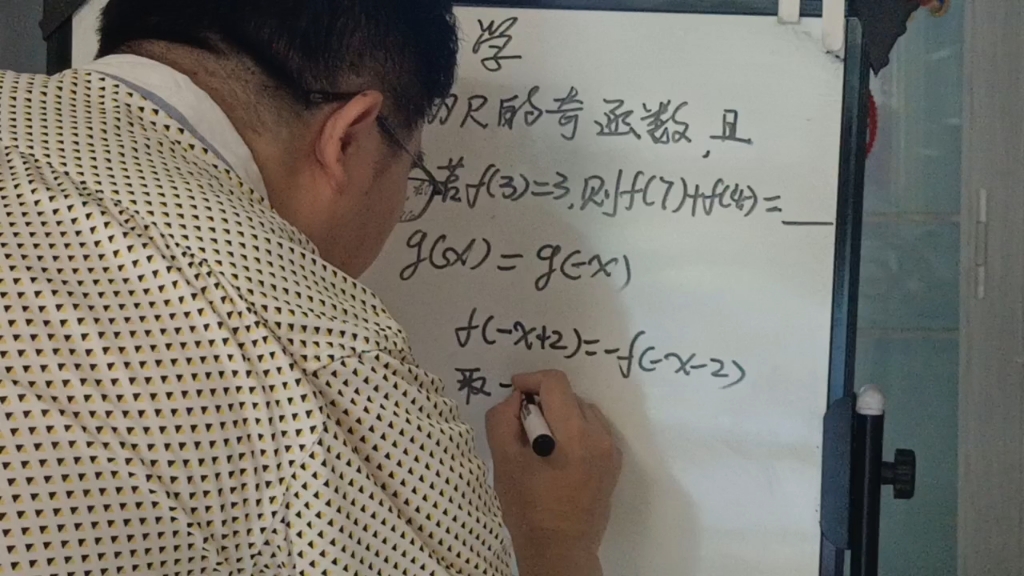 学
R的奇函数,且
若f(3)=3,则f(7)+f(4)=___
g(x)=g(-x)
f(-x+2)=-f(-x-2)
取-